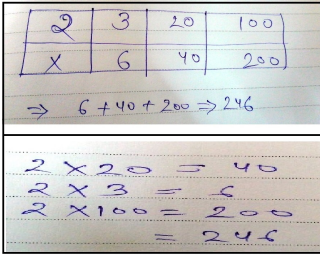 2 3 20 100
X 6 40 200
⇒ 6 + 40 + 200 ⇒ 246
2 × 20 = 40
2 × 3 = 6
2 × 100 = 200
= 246